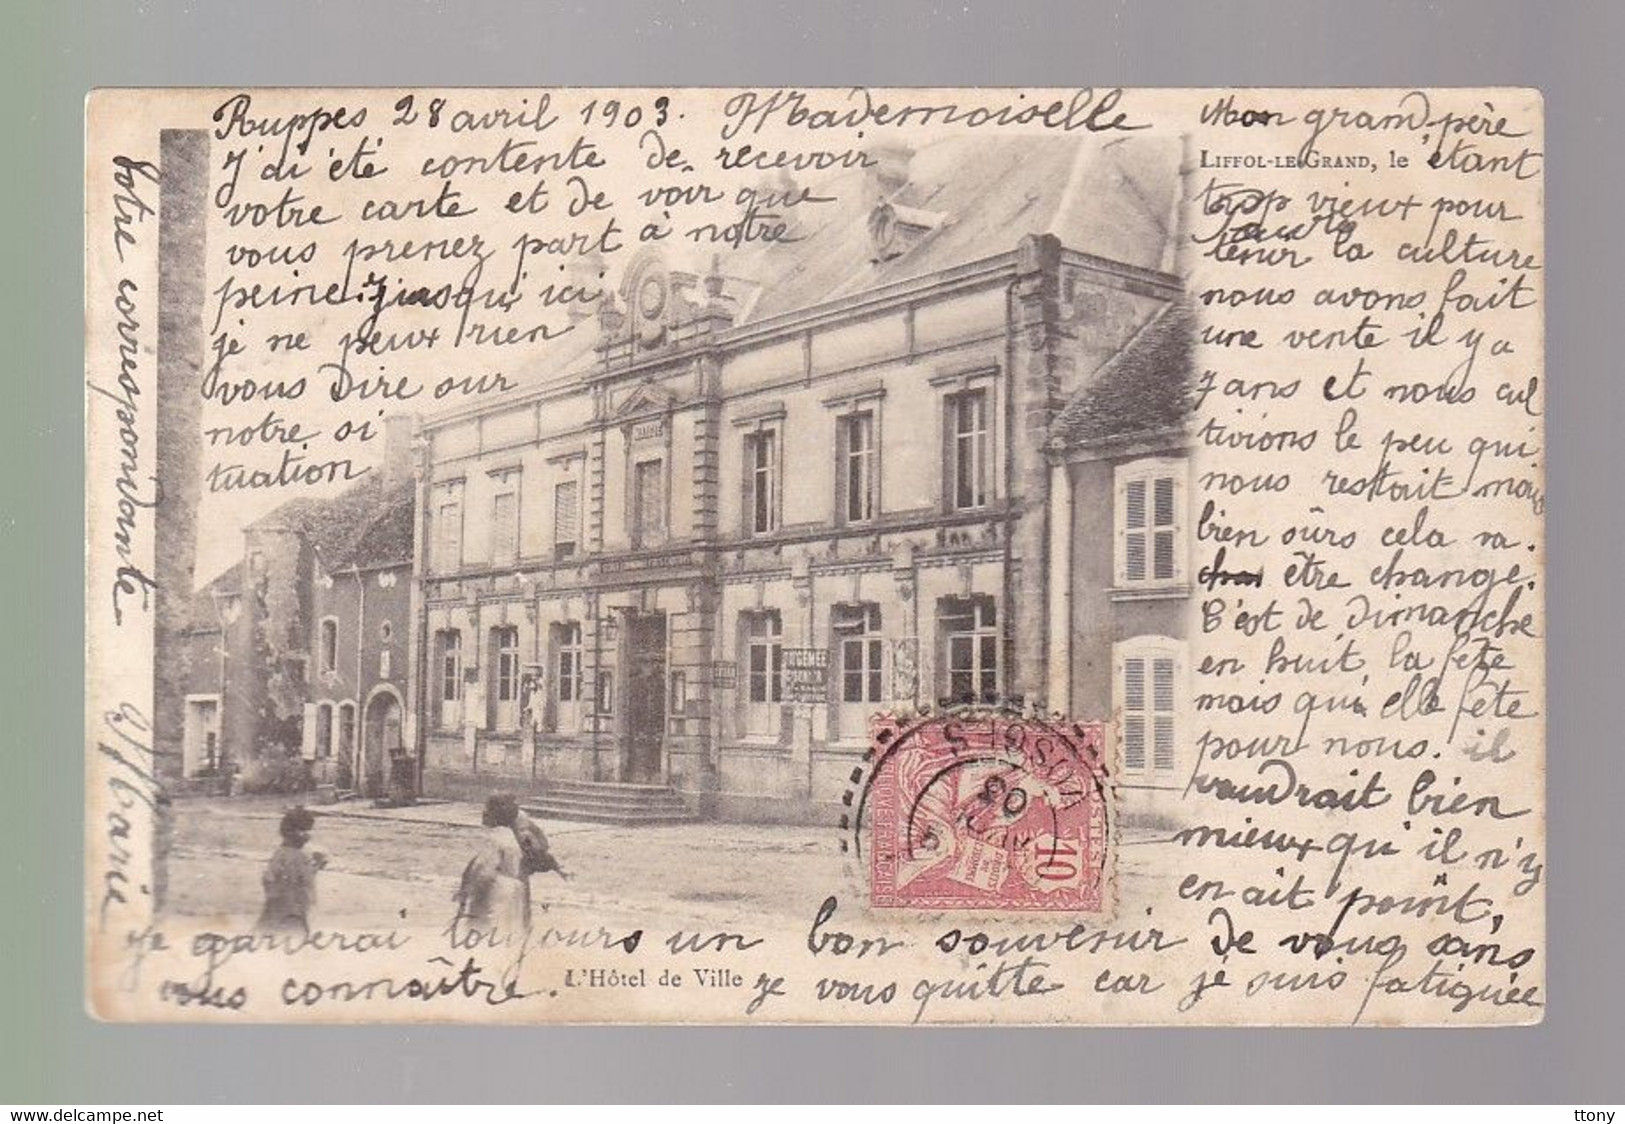 Ruppes 28 avril 1903. Mademoiselle
J'ai été contente de recevoir
votre carte et de voir que
vous prenez part à notre
peine. Jusqu'ici
je ne peux rien
vous dire sur
notre si
tuation
Mon grand père
LIFFOL-LE-GRAND, le
étant
trop vieux pour
tenir la culture
nous avons fait
une vente il y a
7 ans et nous cul
tivions le peu qui
nous restait mais
bien sûrs cela va
être changé.
C'est de dimanche
en huit la fête
mais qui elle fête
pour nous. il
vaudrait bien
mieux qu'il n'y
en ait point,
je garderai toujours un bon souvenir de vous sans
vous connaître.
L'Hôtel de Ville
je vous quitte car je suis fatiguée
Votre correspondante
Marie
MAIRIE
VOSGES
AVRIL
03
10
POSTES
DROITS
DE
L'HOMME
www.delcampe.net
ttony